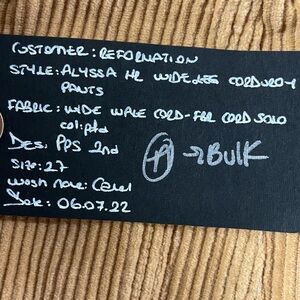 CUSTOMER: REFORMATION
STYLE: ALYSSA HR WIDE LEG CORDUROY
PANTS
FABRIC: WIDE WALE CORD-FBR CORD SOLO
Des: PPS 2nd
→ BULK
Size: 27
Wash name: Camel
Date: 06.07.22